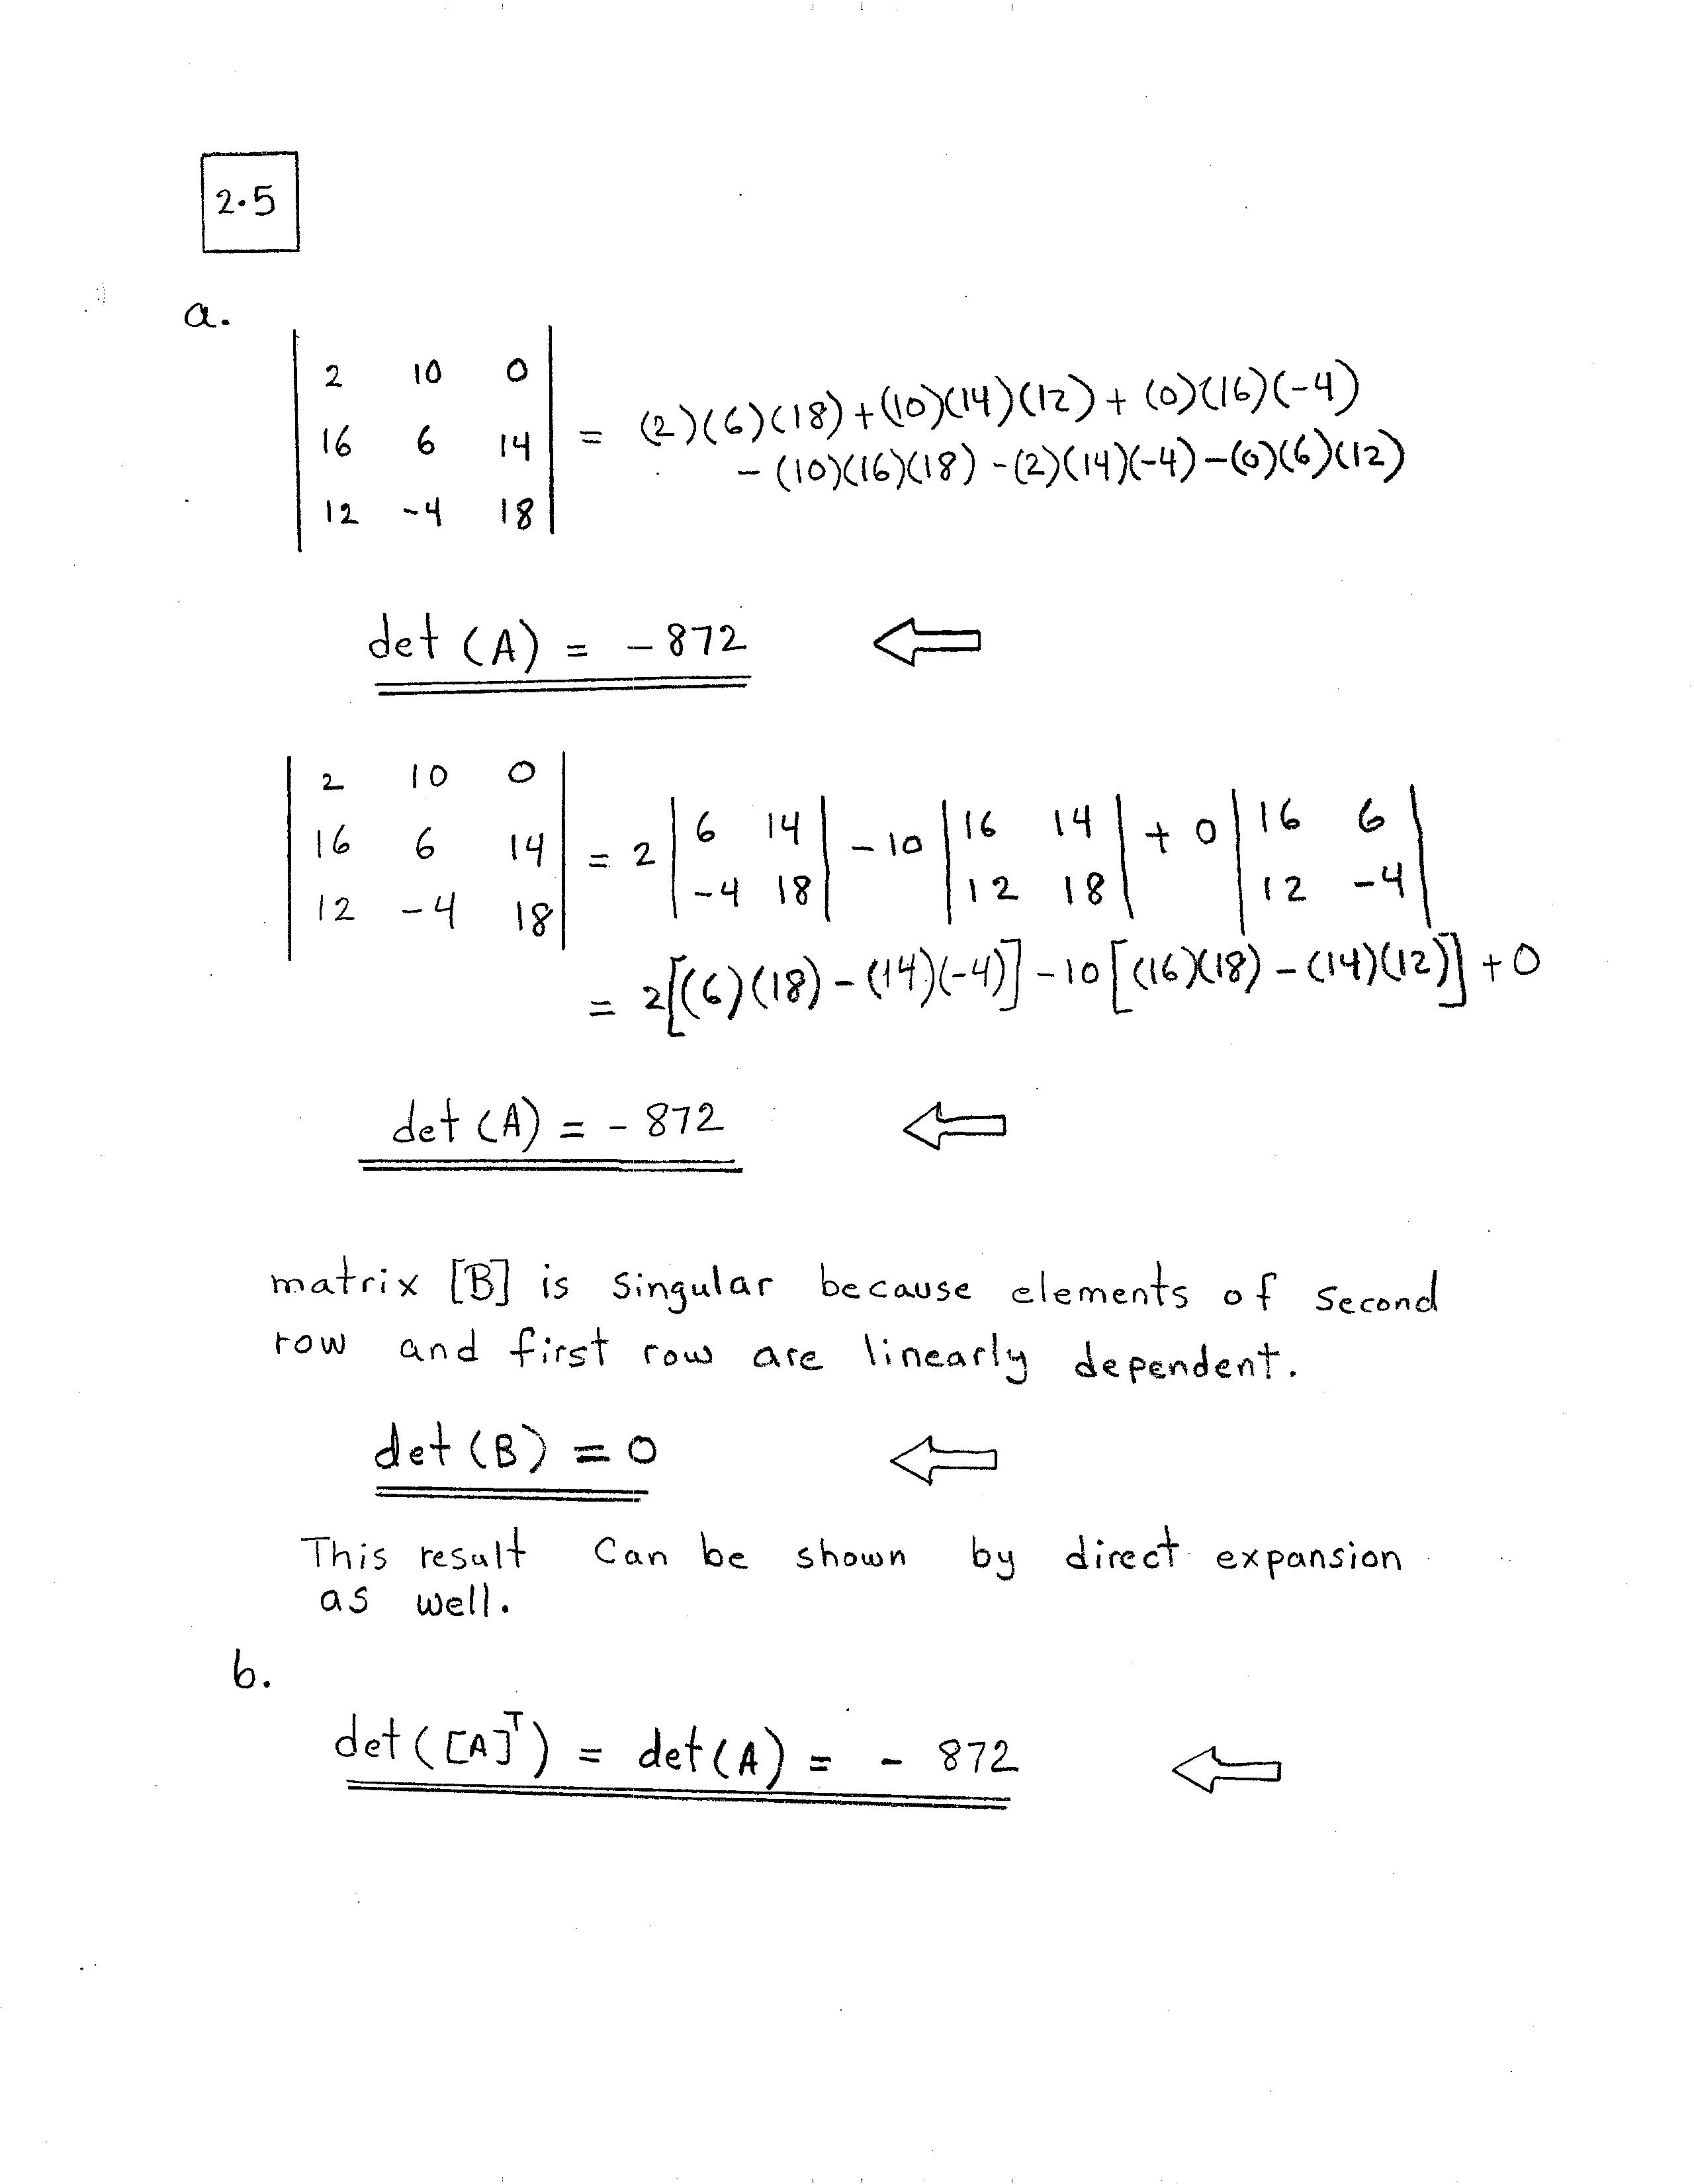 2.5
a.
| 2 10 0 |
| 16 6 14 | = (2)(6)(18)+(10)(14)(12)+(0)(16)(-4)
| 12 -4 18 | -(10)(16)(18)-(2)(14)(-4)-(0)(6)(12)
det (A) = -872
| 2 10 0 |
| 16 6 14 | = 2 | 6 14 | -10 | 16 14 | + 0 | 16 6 |
| 12 -4 18 | | -4 18 | | 12 18 | | 12 -4 |
= 2[(6)(18)-(14)(-4)]-10[(16)(18)-(14)(12)]+0
det (A) = -872
matrix [B] is singular because elements of second
row and first row are linearly dependent.
det (B) = 0
This result can be shown by direct expansion
as well.
b.
det ([A]ᵀ) = det (A) = -872